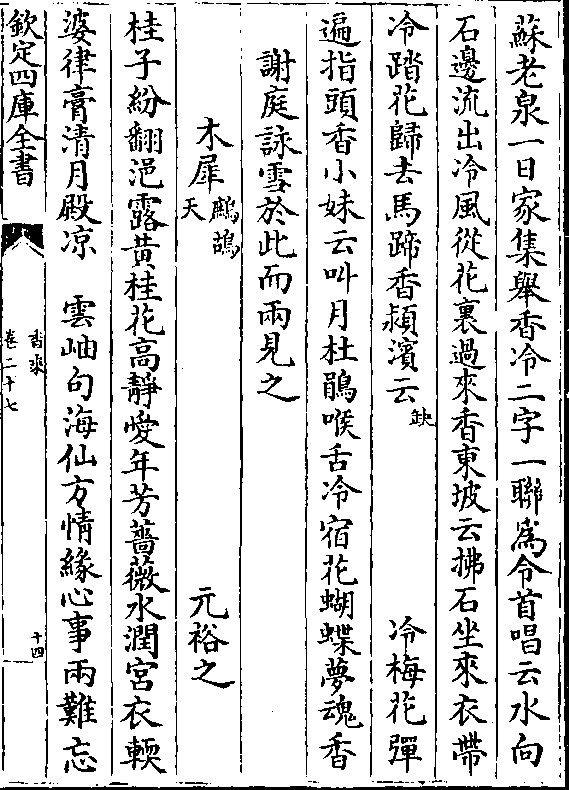 蘇老泉一日家集舉香冷二字一聯為令首唱云水向
石邊流出冷風從花裏過來香東坡云拂石坐來衣帶
冷踏花歸去馬蹄香潁濱云缺　冷梅花彈
遍指頭香小妹云呌月杜鵑喉舌冷宿花蝴蝶夢魂香
謝庭詠雪於此而兩見之
木犀鷓鴣天　元裕之
桂子紛翻浥露黃桂花高靜愛年芳薔薇水潤宮衣輭
婆律膏清月殿凉　雲岫句海仙方情緣心事兩難忘
欽定四庫全書　香乘　卷二十七　十四